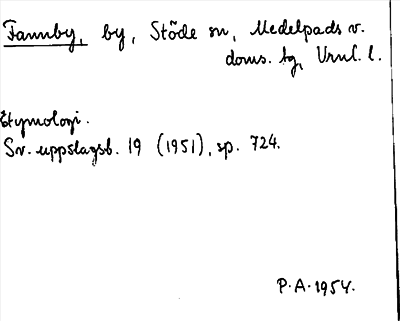 Fannby, by, Stöde sn, Medelpads v.
doms. tg, Vrnl. l.
Etymologi.
Sv. uppslagsb. 19 (1951), sp. 724.
P.A. 1954.